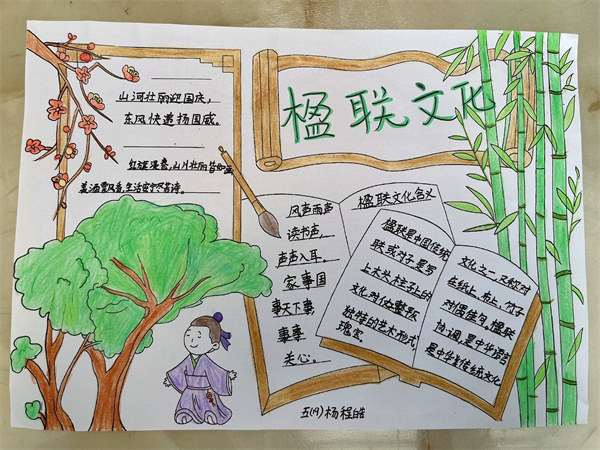 楹联文化
山河壮丽迎国庆，
东风快递扬国威。
红旗漫卷，山川壮丽皆如画
美酒飘香，生活安宁尽若诗。
风声雨声
读书声，
声声入耳。
家事国
事天下事
事事
关心。
楹联文化含义
楹联是中国传统
文化之一又称对
联或对子是写
在纸上、布上、竹子
上木头柱子上的
对偶语句。楹联
文对仗整积
协调，是中华语言
独特的艺术形式
是中华传统文化
瑰宝
五(19)杨程皓